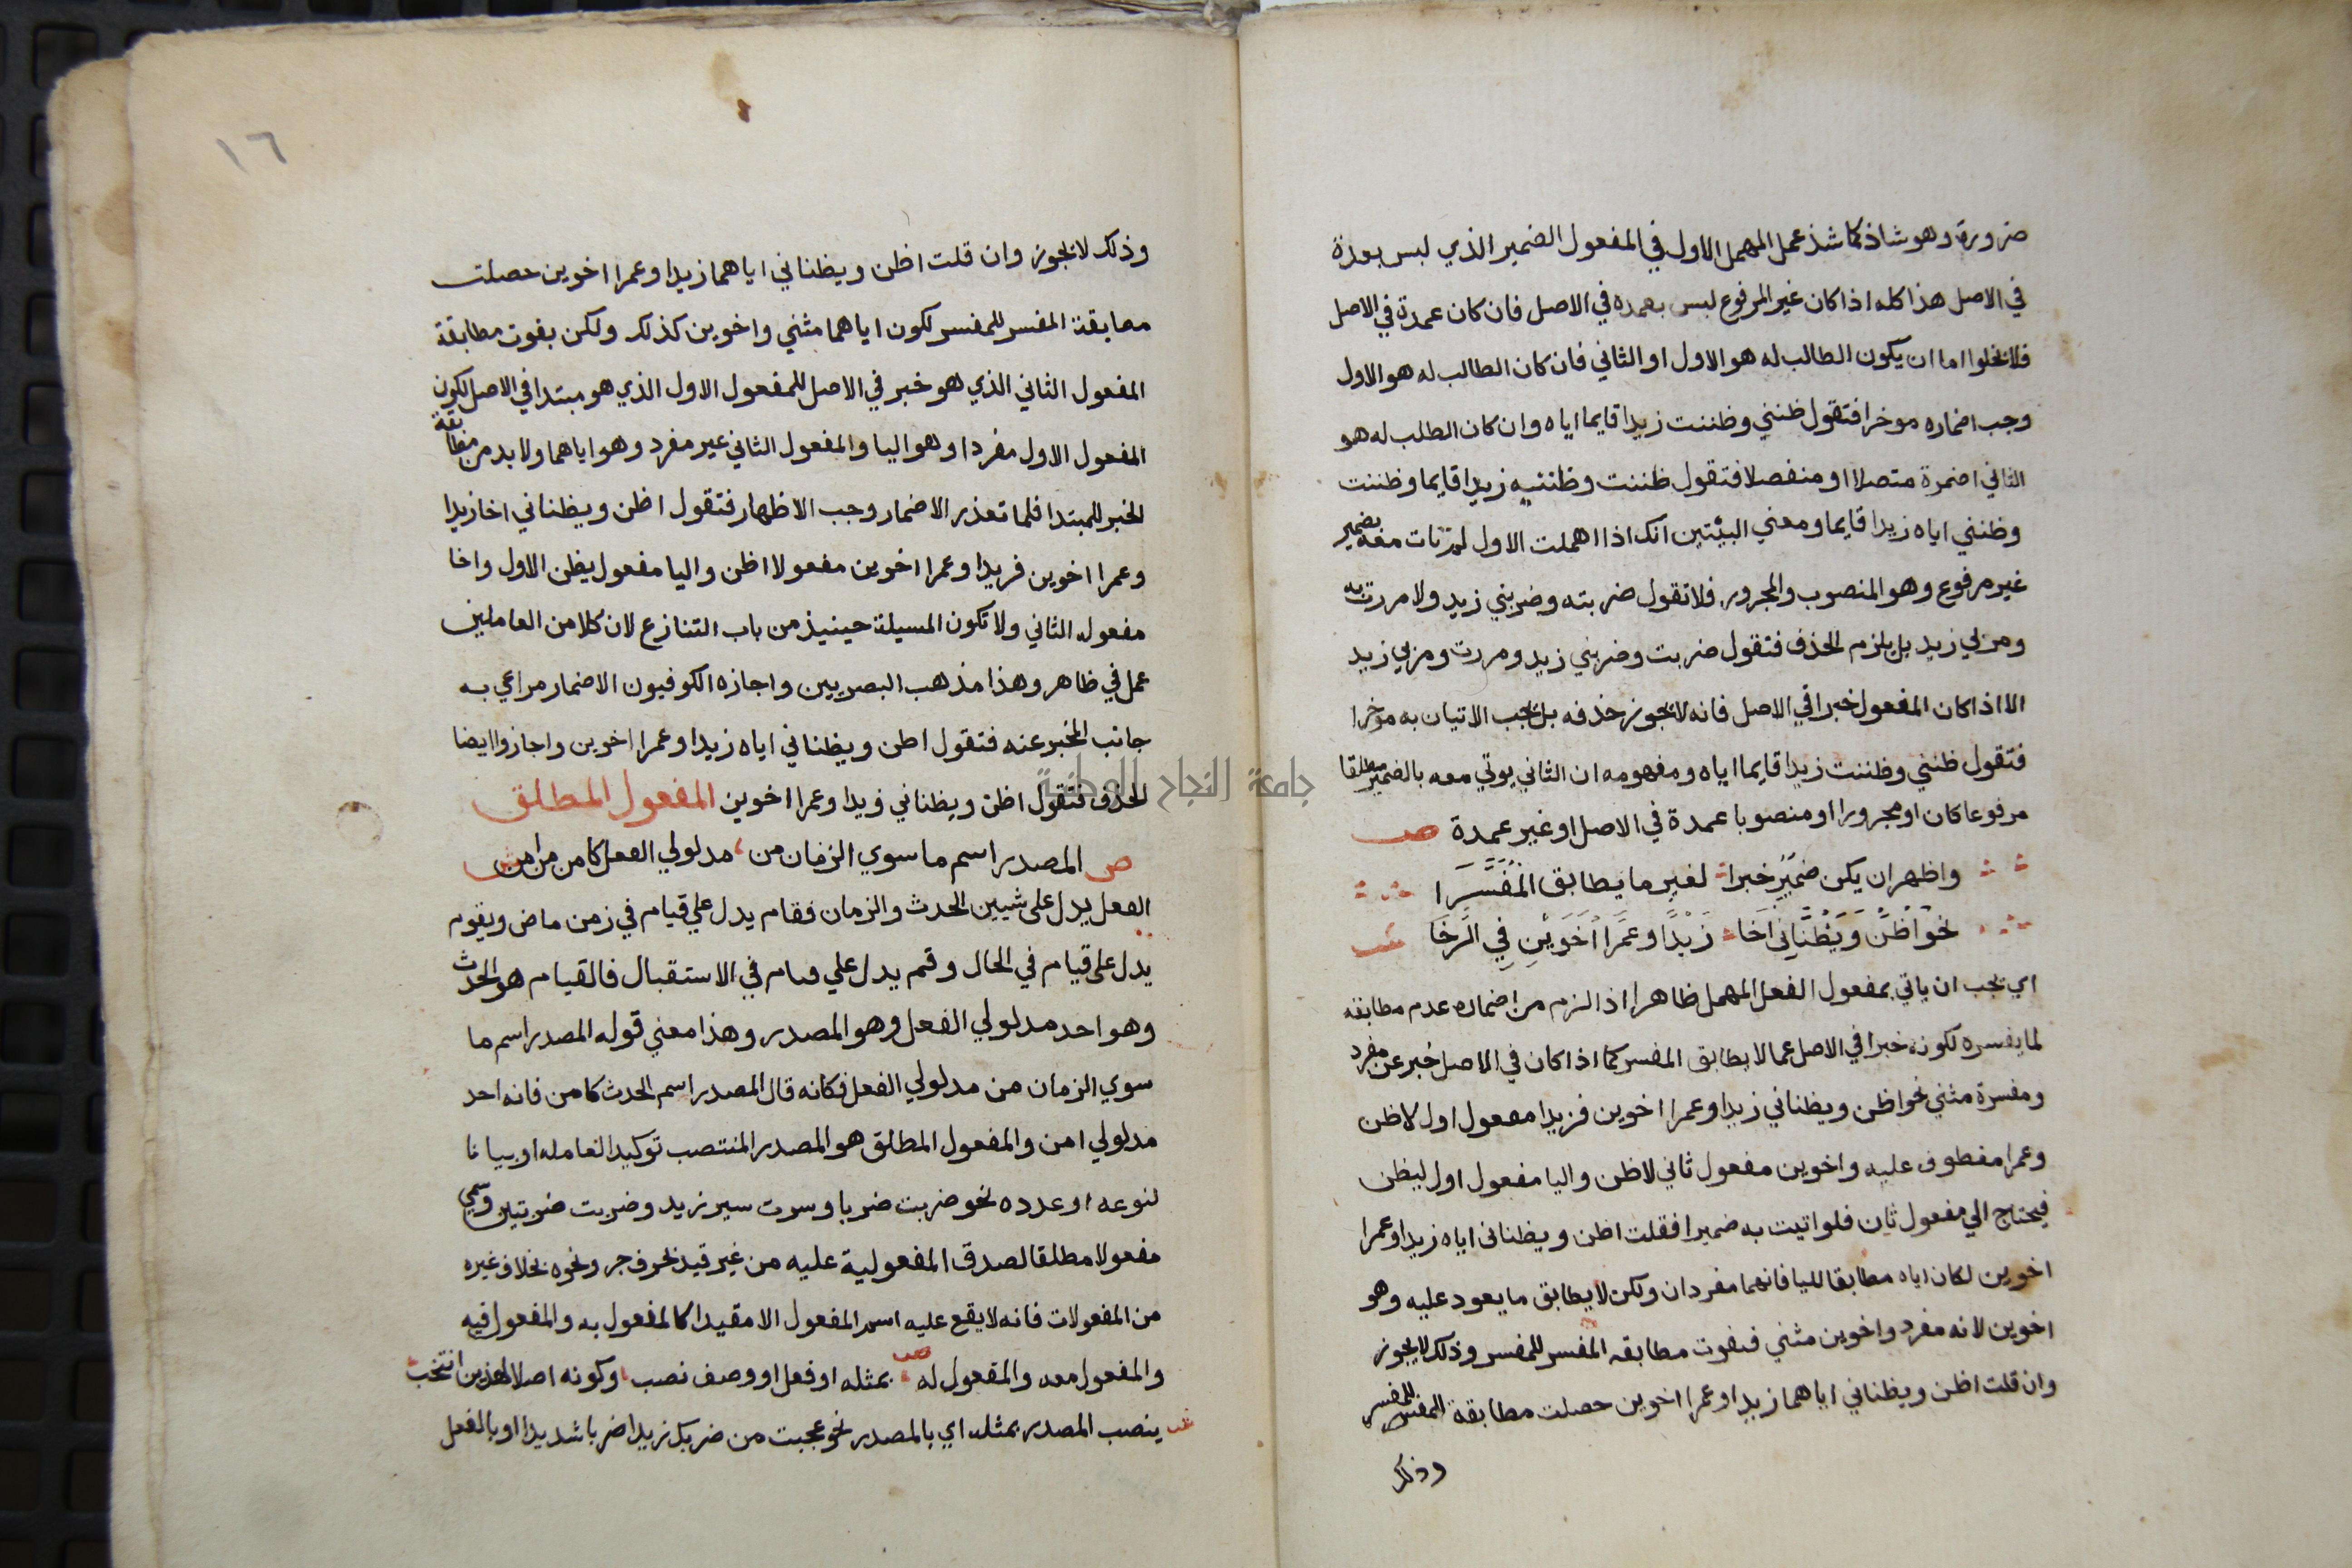 ضرورة وهو شاذ كما شذ عمل المهمل الاول في المفعول الضمير الذي ليس بعمدة
في الاصل هذا كله اذا كان غير المرفوع ليس بعمده في الاصل فان كان عمدة في الاصل
فلا يخلوا اما ان يكون الطالب له هو الاول او الثاني فان كان الطالب له هو الاول
وجب اضماره موخرا فتقول ظنني وظننت زيدا قايما اياه وان كان الطلب له هو
الثاني اضمرة متصلا او منفصلا فتقول ظننت وظننيه زيدا قايما وظننت
وظنني اياه زيدا قايما ومعني البيتين انك اذا اهملت الاول لم تات معه بضمير
غير مرفوع وهو المنصوب والمجرور فلا تقول ضربته وضربني زيد ولا مررت به
ومر بي زيد بل يلزم الحذف فتقول ضربت وضربني زيد ومررت ومر بي زيد
الا اذا كان المفعول خبرا في الاصل فانه لا يجوز حذفه بل يجب الاتيان به موخرا
فتقول ظنني وظننت زيدا قايما اياه ومفهومه ان الثاني يوتي معه بالضمير مطلقا
مرفوعا كان او مجرورا او منصوبا عمدة في الاصل او غير عمدة ص
واظهر ان يكن ضمير خبرا لغير ما يطابق المفسرا
نحو اظن ويظناني اخا زيدا وعمرا اخوين في الرخا ش
اي يجب ان ياتي بمفعول الفعل المهمل ظاهرا اذا لزم من اضماره عدم مطابقه
لما يفسره لكونه خبرا في الاصل عما لا يطابق المفسر كما اذا كان في الاصل خبر عن مفرد
ومفسرة مثني نحو اظن ويظناني زيدا وعمرا اخوين فزيدا مفعول اول لاظن
وعمرا معطوف عليه واخوين مفعول ثاني لاظن واليا مفعول اول ليظن
فيحتاج الي مفعول ثان فلو اتيت به ضميرا فقلت اظن ويظناني اياه زيدا وعمرا
اخوين لكان اياه مطابقا لليا فانهما مفردان ولكن لا يطابق ما يعود عليه وهو
اخوين لانه مفرد واخوين مثني فيفوت مطابقه المفسر للمفسر وذلك لا يجوز
وان قلت اظن ويظناني اياهما زيدا وعمرا اخوين حصلت مطابقة المفسر للمفسر
وذلك
١٦
وذلك لا يجوز وان قلت اظن ويظناني اياهما زيدا وعمرا اخوين حصلت
مطابقة المفسر للمفسر لكون اياهما مثني واخوين كذلك ولكن يفوت مطابقة
المفعول الثاني الذي هو خبر في الاصل للمفعول الاول الذي هو مبتدا في الاصل لكون
المفعول الاول مفردا وهو اليا والمفعول الثاني غير مفرد وهو اياهما ولا بد من مطابقة
الخبر للمبتدا فلما تعذر الاضمار وجب الاظهار فتقول اظن ويظناني اخا زيدا
وعمرا اخوين فزيدا وعمرا اخوين مفعولا اظن واليا مفعول يظن الاول واخا
مفعوله الثاني ولا تكون المسيلة حينيذ من باب التنازع لان كلا من العاملين
عمل في ظاهر وهذا مذهب البصريين واجازه الكوفيون الاضمار مراعي به
جانب المخبر عنه فتقول اظن ويظناني اياه زيدا وعمرا اخوين واجازوا ايضا
الحذف فتقول اظن ويظناني زيدا وعمرا اخوين المفعول المطلق
ص المصدر اسم ما سوي الزمان من مدلولي الفعل كامن من امن ش
الفعل يدل على شيين الحدث والزمان فقام يدل علي قيام في زمن ماض ويقوم
يدل على قيام في الحال وقم يدل علي قيام في الاستقبال فالقيام هو الحدث
وهو احد مدلولي الفعل وهو المصدر وهذا معني قوله المصدر اسم ما
سوي الزمان من مدلولي الفعل فكانه قال المصدر اسم الحدث كامن فانه احد
مدلولي امن والمفعول المطلق هو المصدر المنتصب توكيدا لعامله او بيانا
لنوعه او عدده نحو ضربت ضربا وسرت سير زيد وضربت ضربتين وسمي
مفعولا مطلقا لصدق المفعولية عليه من غير قيد بحرف جر ونحوه بخلاف غيره
من المفعولات فانه لا يقع عليه اسم المفعول الا مقيدا كالمفعول به والمفعول فيه
والمفعول معه والمفعول له ص بمثله او فعل او وصف نصب وكونه اصلا لهذين انتخب
ش ينصب المصدر بمثله اي بالمصدر نحو عجبت من ضربك زيدا ضربا شديدا او بالفعل
جامعة النجاح الوطنية